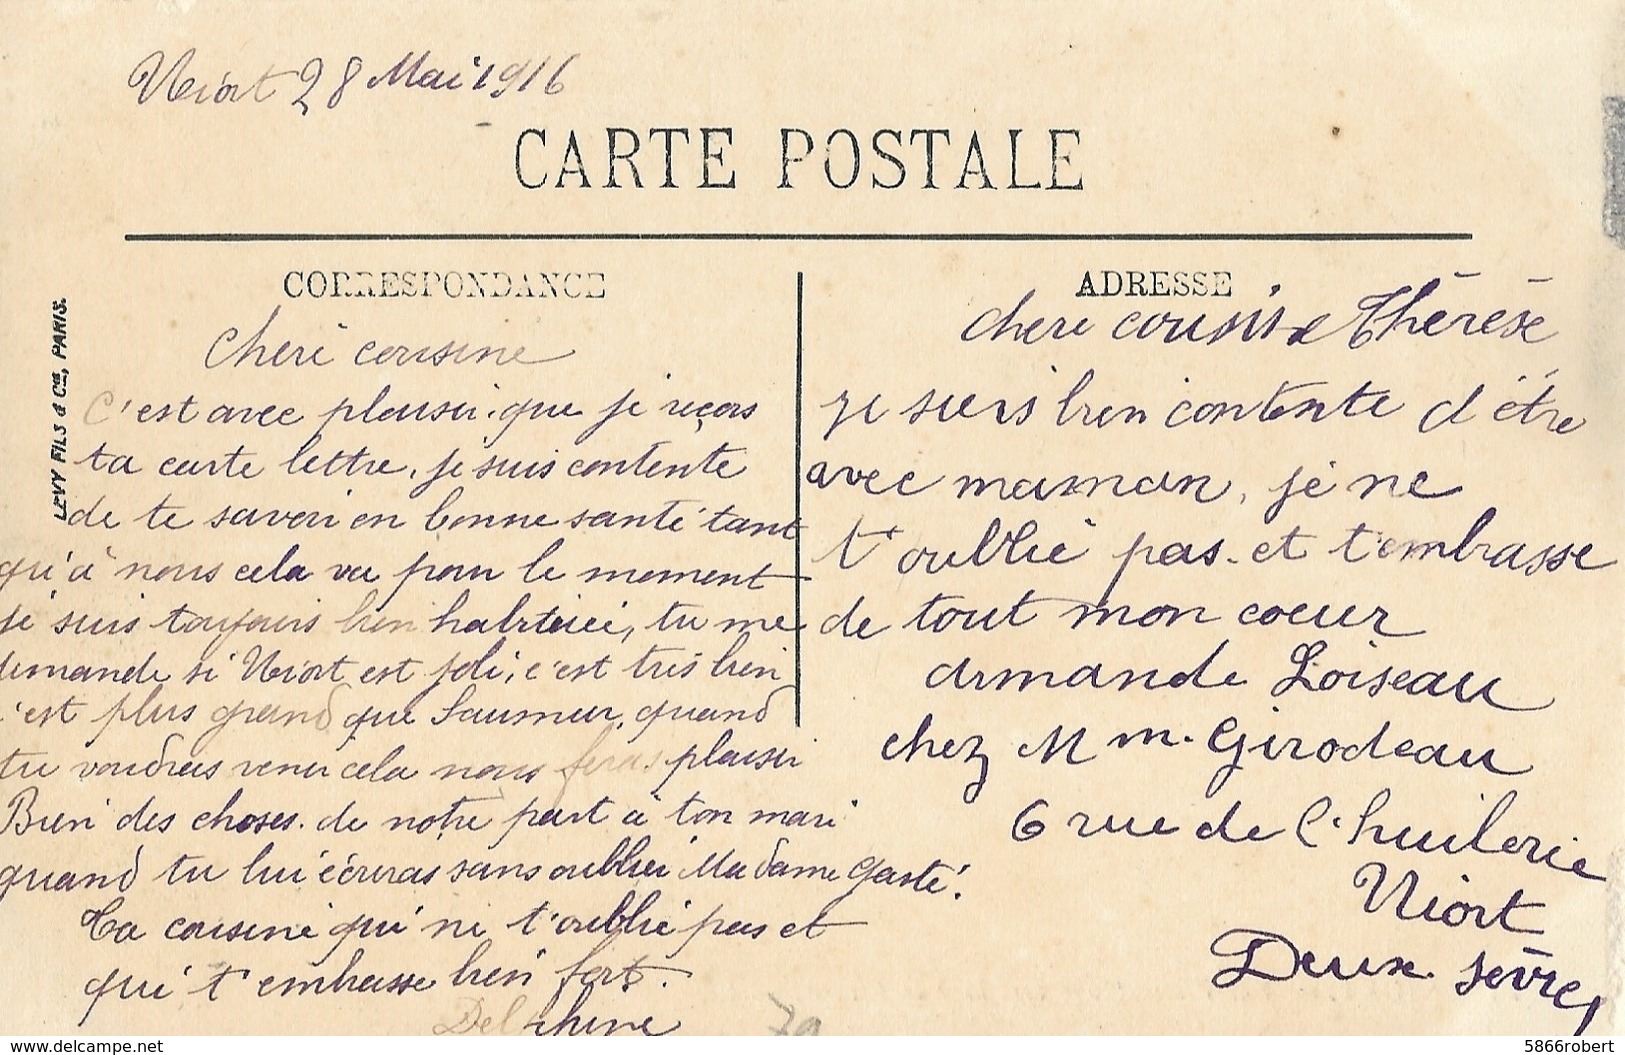 Niort 28 Mai 1916
CARTE POSTALE
CORRESPONDANCE
LEVY FILS & Cie, PARIS.
Cheri cousine
C'est avec plaisir que je reçois
ta carte lettre, je suis contente
de te savoir en bonne santé tant
qu'à nous cela va pour le moment
je suis toujours bien habituéi, tu me
demande si Niort est joli, c'est très bien
c'est plus grand que Saumur, quand
tu voudras venir cela nous feras plaisir
Bien des choses de notre part à ton mari
quand tu lui écriras sans oublier Madame Gasté.
Ta cousine qui ne t'oublie pas et
qui t'embrasse bien fort.
Delphine
ADRESSE
chere cousine Thérèse
je suis bien contente d'être
avec maman, je ne
t'oublie pas et t'embrasse
de tout mon coeur
armande Loiseau
chez Mme. Girodeau
6 rue de l'huilerie
Niort
Deux Sèvres
79
www.delcampe.net
5866robert